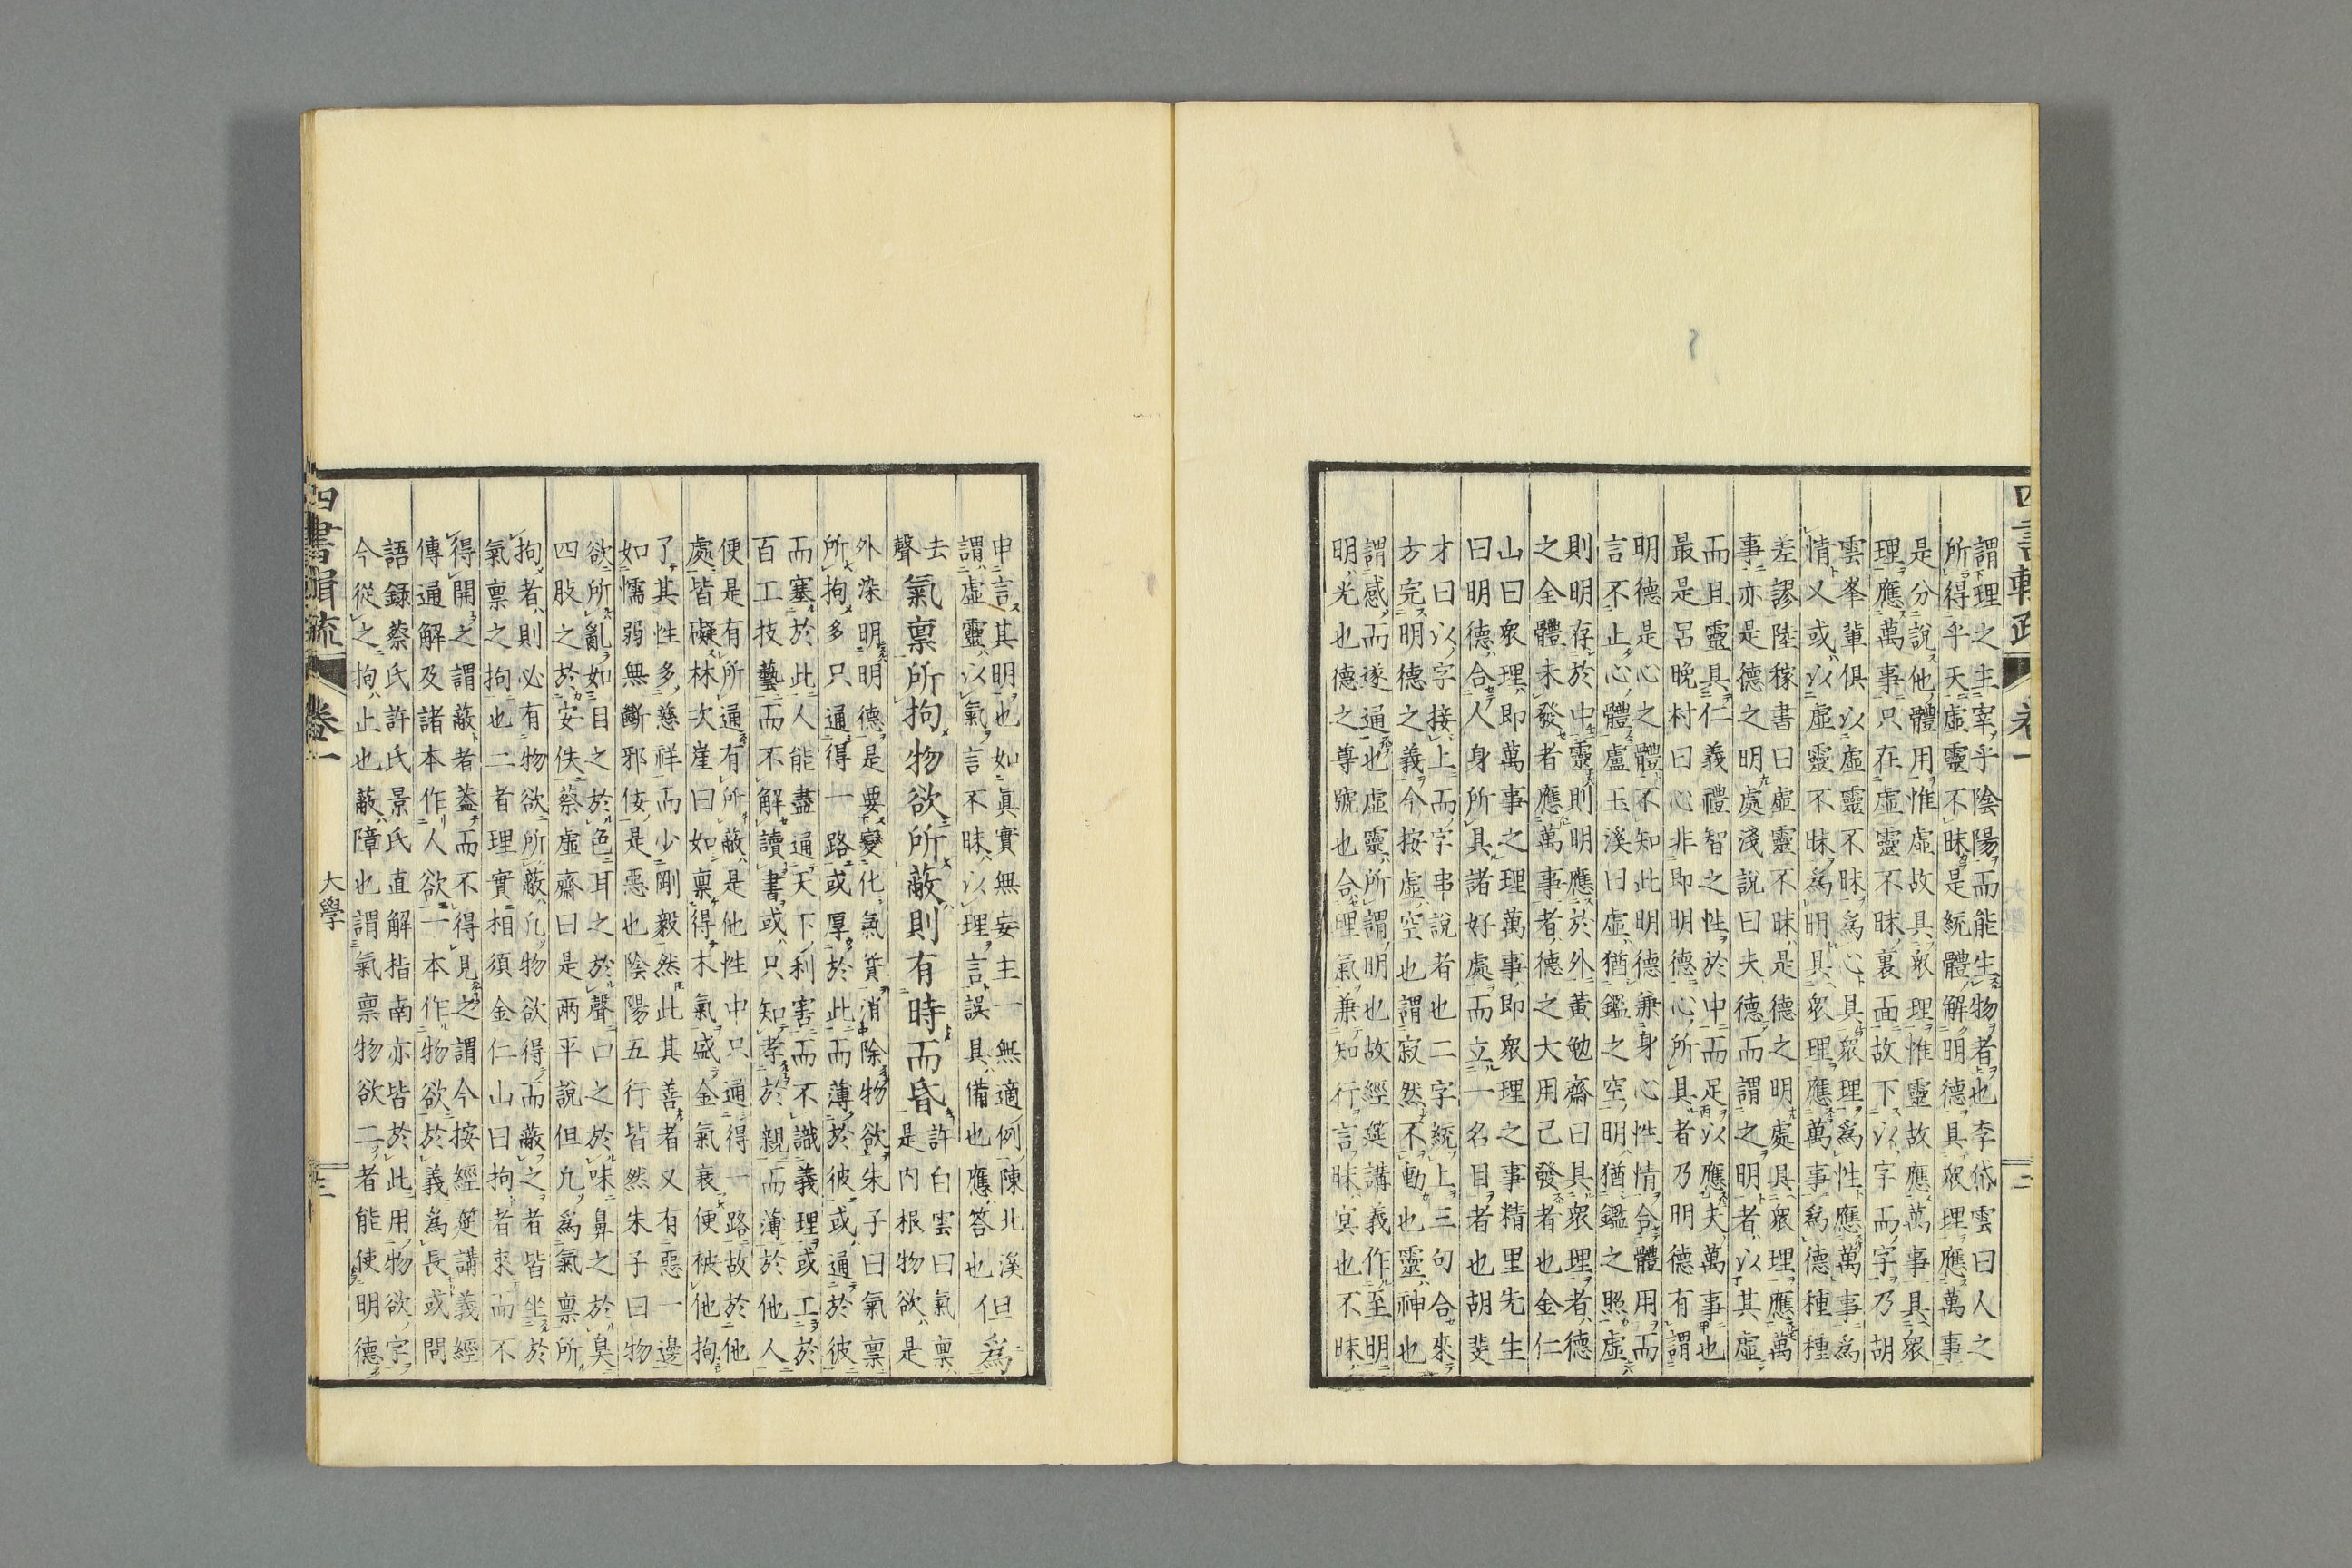 謂理之主宰乎陰陽而能生物者也李岱雲曰人之
所得乎天虛靈不昧是統體解明德具衆理應萬事
是分說他體用惟虛故具衆理惟靈故應萬事具衆
理應萬事只在虛靈不昧裏面故下以字而字乃胡
雲峯輩俱以虛靈不昧爲心具衆理爲性應萬事爲
情又或以虛靈不昧爲明具衆理應萬事爲德種種
差謬陸稼書曰虛靈不昧是德之明處具衆理應萬
事亦是德之明處淺說曰夫德而謂之明者以其虛
而且靈具仁義禮智之性於中而足以應夫萬事也
最是呂晚村曰心非即明德心所具者乃明德有謂
明德是心之體不知此明德兼身心性情合體用而
言不止心體盧玉溪曰虛猶鑑之空明猶鑑之照虛
則明存於中靈則明應於外黃勉齋曰具衆理者德
之全體未發者應萬事者德之大用已發者也金仁
山曰衆理即萬事之理萬事即衆理之事精里先生
曰明德合人身所具諸好處而立一名目者也胡斐
才曰以字接上而字串說者也二字統上三句合來
方完明德之義今按虛空也謂寂然不動也靈神也
謂感而遂通也虛靈所謂明也故經筵講義作至明
明光也德之尊號也合理氣兼知行言昧冥也不昧
四書輯疏 卷一 二
申言其明也如眞實無妄主一無適例陳北溪
謂虛靈以氣言不昧以理言誤具備也應答也但爲
去聲氣稟所拘物欲所蔽則有時而昏許白雲曰氣稟
是内根物欲是
外染明明德是要變化氣質消除物欲朱子曰氣稟
所拘多只通得一路或厚於此而薄於彼或通於彼
而塞於此人能盡通天下利害而不識義理或工於
百工技藝而不解讀書或只知孝於親而薄於他人
便是有所通有所蔽是他性中只通得一路故於他
處皆礙林次崖曰如稟得木氣盛金氣衰便被他拘
了其性多慈祥而少剛毅然此其善者又有惡一邊
如懦弱無斷邪佞是惡也陰陽五行皆然朱子曰物
欲所亂如目之於色耳之於聲口之於味鼻之於臭
四肢之於安佚蔡虛齋曰是兩平說但凡爲氣稟所
拘者則必有物欲所蔽凡物欲得而蔽之者皆坐於
氣稟之拘也二者理實相須金仁山曰拘者束而不
得開之謂蔽者蓋而不得見之謂今按經筵講義經
傳通解及諸本作人欲一本作物欲於義爲長或問
語錄蔡氏許氏景氏直解指南亦皆於此用物欲字
今從之拘止也蔽障也謂氣稟物欲二者能使明德
四書輯疏 卷一 大學 三